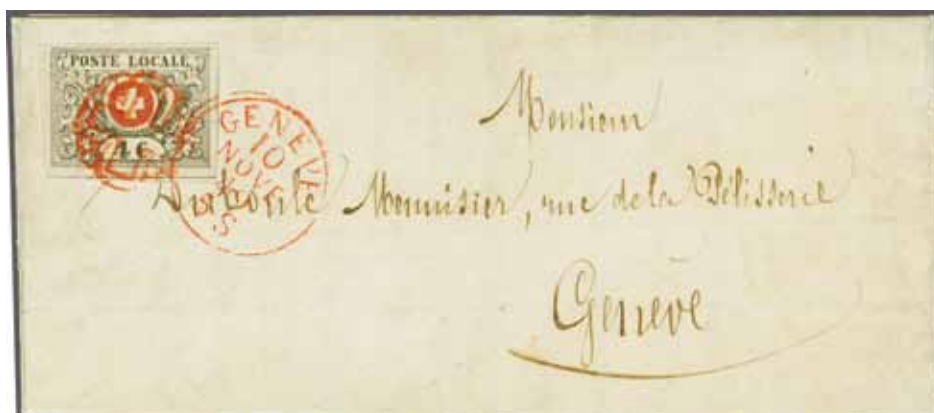 POSTE LOCALE
4 C
GENEVE
10
NOVE
S
Monsieur
Menuisier, rue de la Pélisserie
Genève